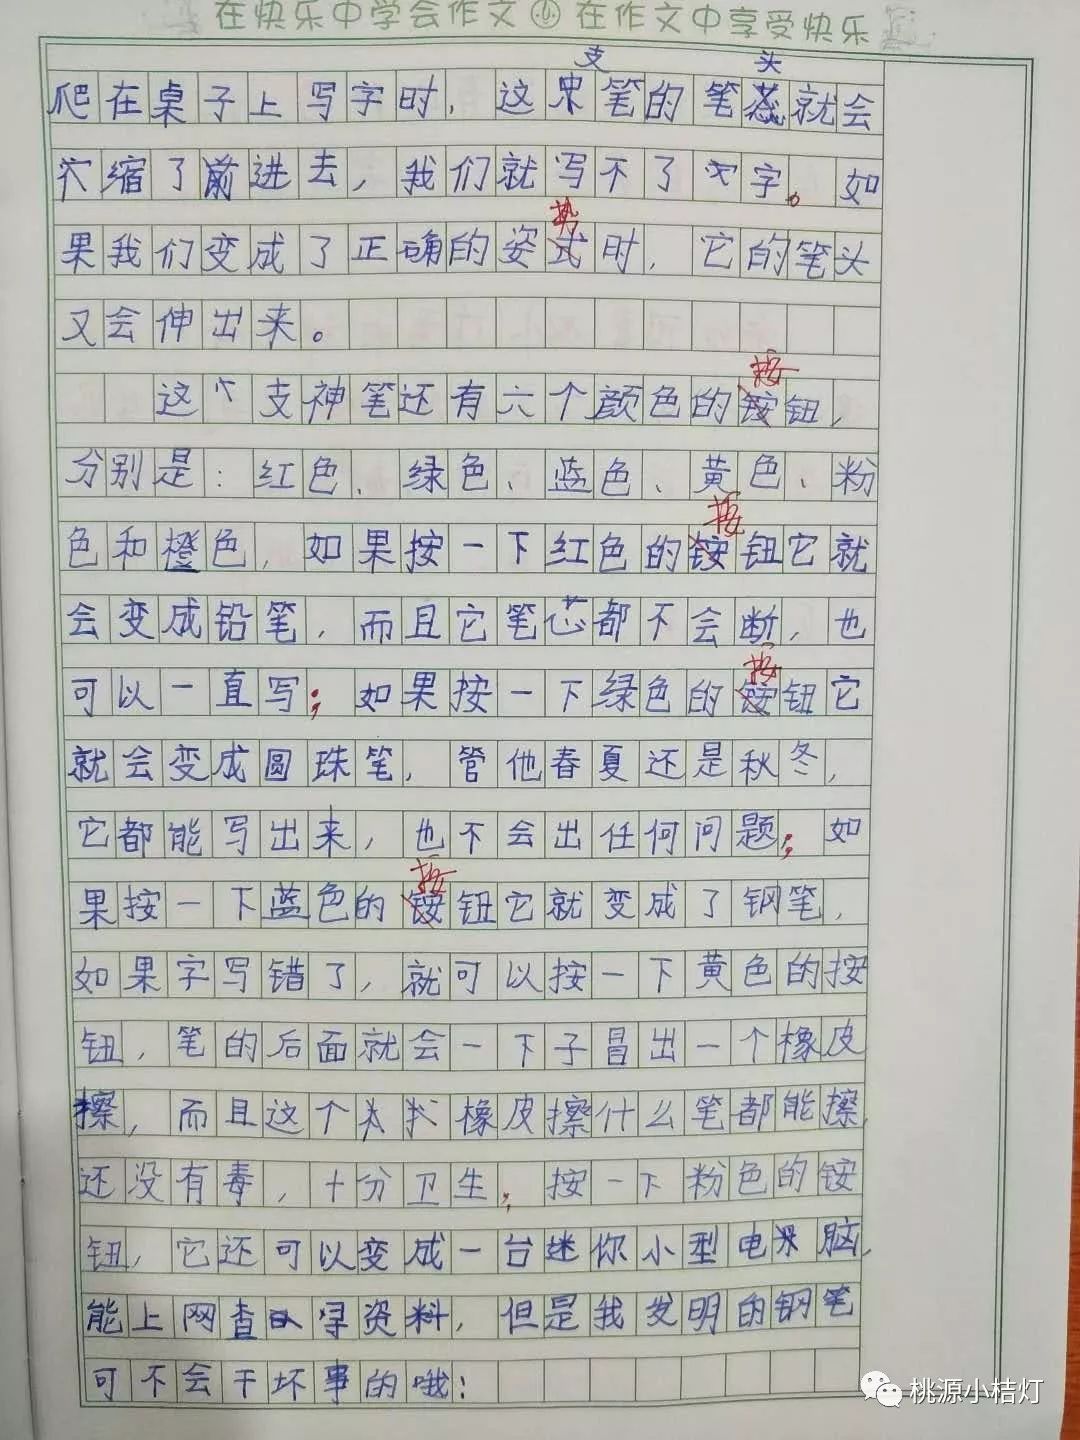 在快乐中学会作文 在作文中享受快乐
支 头
爬在桌子上写字时，这笔的笔蕊就会
缩了前进去，我们就写不了字。如
势
果我们变成了正确的姿式时，它的笔头
又会伸出来。
按
这个支神笔还有六个颜色的铵钮，
分别是：红色、绿色、蓝色、黄色、粉
按
色和橙色，如果按一下红色的铵钮它就
会变成铅笔，而且它笔芯都不会断，也
按
可以一直写；如果按一下绿色的铵钮它
就会变成圆珠笔，管他春夏还是秋冬，
它都能写出来，也不会出任何问题；如
按
果按一下蓝色的铵钮它就变成了钢笔，
如果字写错了，就可以按一下黄色的按
钮，笔的后面就会一下子冒出一个橡皮
擦，而且这个橡皮擦什么笔都能擦，
还没有毒，十分卫生；按一下粉色的铵
钮，它还可以变成一台迷你小型电脑，
能上网查寻资料，但是我发明的钢笔
可不会干坏事的哦！
桃源小桔灯